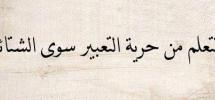 تعلم من حرية التعبير سوى الشتائ